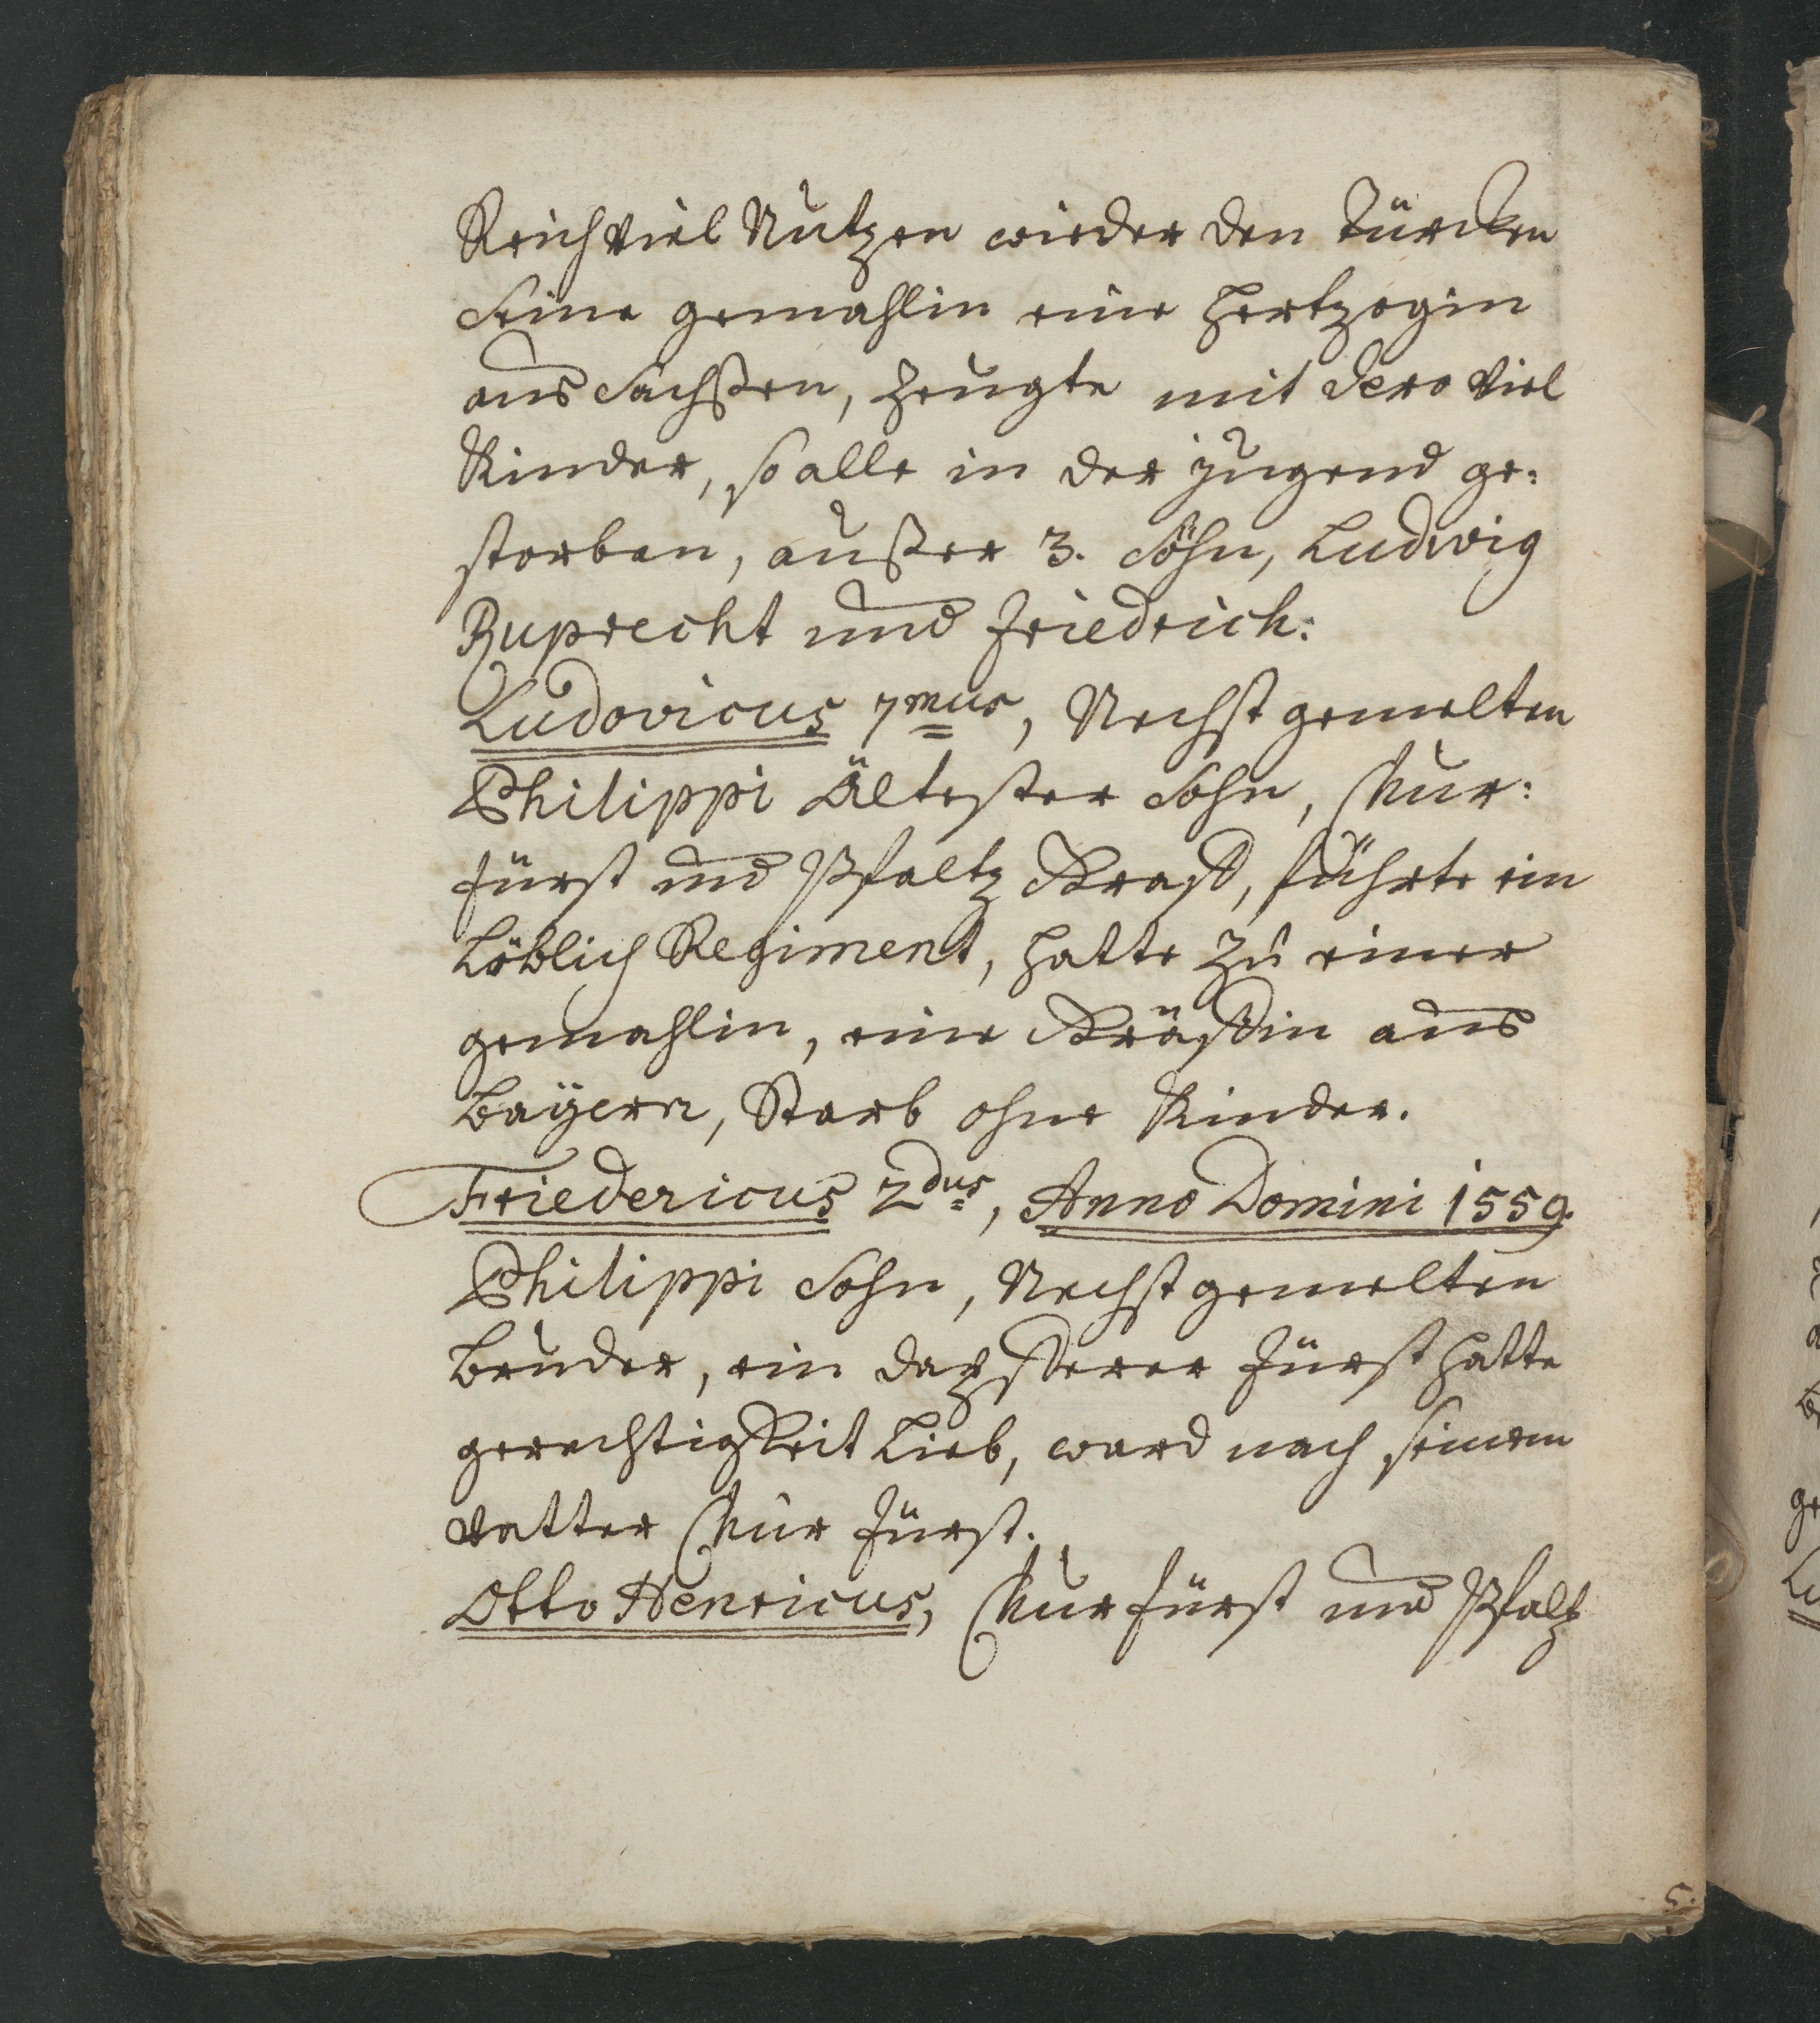 Reich viel Nutzen wieder den Türcken
Seine gemahlin eine Hertzogin
aus Sachßen, Zeugte mit dero viel
Kinder, so alle in der jugend ge:
storben, außer 3. Söhn, Ludwig
Ruprecht und Friedrich:
Ludovicus 7mus, Nechst gemelten
Philippi Ältester Sohn, Chur:
fürst und Pfaltz Graff, führte ein
Löblich Regiment, hatte zu einer
gemahlin, eine Gräffin aus
Bayern, Starb ohne Kinder.
Friedericus 2dus, Anno Domini 1559.
Philippi Sohn, Nechst gemelten
Bruder, ein dapfferer Fürst hatte
gerechtigkeit Lieb, ward nach seinem
vatter Chur Fürst.
Otto Henricus, Churfürst und Pfaltz